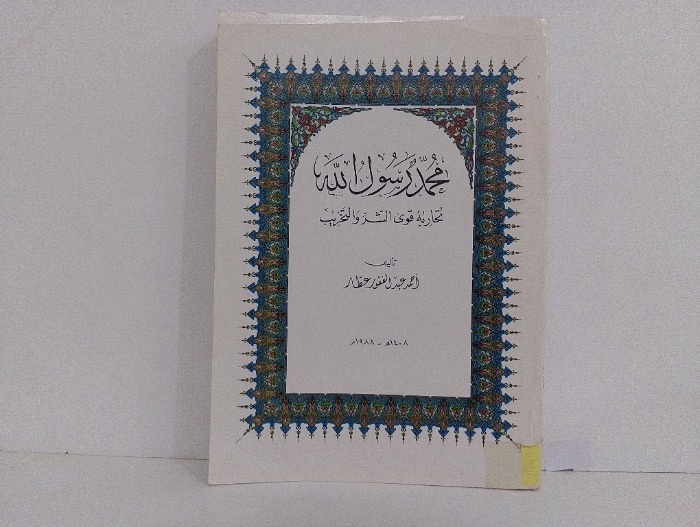 محمد رسول الله
تحاربه قوى الشر والتخريب
تأليف
أحمد عبد الغفور عطار
١٤٠٨هـ - ١٩٨٨م